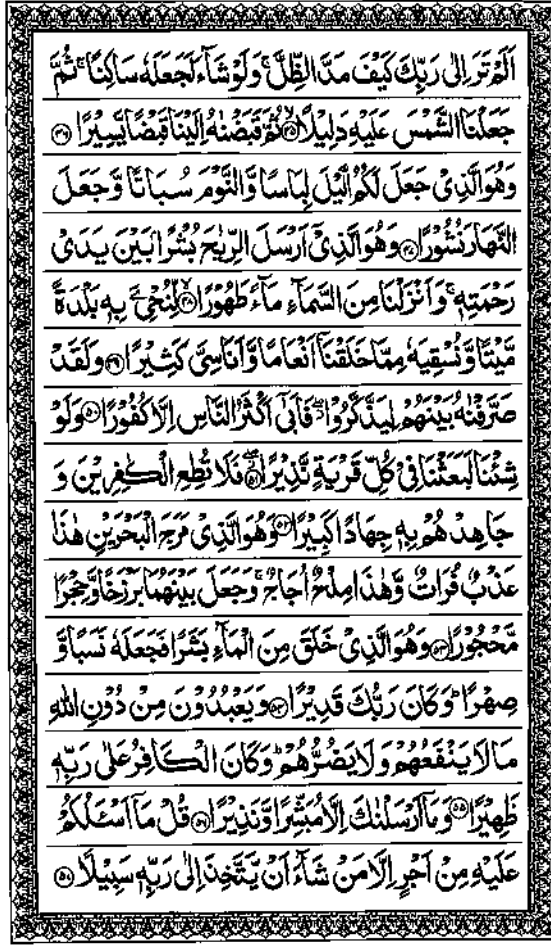 اَلَمْ تَرَ اِلٰى رَبِّكَ كَيْفَ مَدَّ الظِّلَّ ۚ وَلَوْ شَآءَ لَجَعَلَهٗ سَاكِنًا ۚ ثُمَّ
جَعَلْنَا الشَّمْسَ عَلَيْهِ دَلِيْلًا ۙ﴿۴۵﴾ ثُمَّ قَبَضْنٰهُ اِلَيْنَا قَبْضًا يَّسِيْرًا ﴿۴۶﴾
وَهُوَ الَّذِيْ جَعَلَ لَكُمُ الَّيْلَ لِبَاسًا وَّالنَّوْمَ سُبَاتًا وَّجَعَلَ
النَّهَارَ نُشُوْرًا ﴿۴۷﴾ وَهُوَ الَّذِيْۤ اَرْسَلَ الرِّيٰحَ بُشْرًا بَيْنَ يَدَيْ
رَحْمَتِهٖ ۚ وَاَنْزَلْنَا مِنَ السَّمَآءِ مَآءً طَهُوْرًا ۙ﴿۴۸﴾ لِّنُحْيِۦَ بِهٖ بَلْدَةً
مَّيْتًا وَّنُسْقِيَهٗ مِمَّا خَلَقْنَاۤ اَنْعَامًا وَّاَنَاسِيَّ كَثِيْرًا ﴿۴۹﴾ وَلَقَدْ
صَرَّفْنٰهُ بَيْنَهُمْ لِيَذَّكَّرُوْا ۖ فَاَبٰۤى اَكْثَرُ النَّاسِ اِلَّا كُفُوْرًا ﴿۵۰﴾ وَلَوْ
شِئْنَا لَبَعَثْنَا فِيْ كُلِّ قَرْيَةٍ نَّذِيْرًا ۖ﴿۵۱﴾ فَلَا تُطِعِ الْكٰفِرِيْنَ وَ
جَاهِدْهُمْ بِهٖ جِهَادًا كَبِيْرًا ﴿۵۲﴾ وَهُوَ الَّذِيْ مَرَجَ الْبَحْرَيْنِ هٰذَا
عَذْبٌ فُرَاتٌ وَّهٰذَا مِلْحٌ اُجَاجٌ ۚ وَجَعَلَ بَيْنَهُمَا بَرْزَخًا وَّحِجْرًا
مَّحْجُوْرًا ﴿۵۳﴾ وَهُوَ الَّذِيْ خَلَقَ مِنَ الْمَآءِ بَشَرًا فَجَعَلَهٗ نَسَبًا وَّ
صِهْرًا ؕ وَكَانَ رَبُّكَ قَدِيْرًا ﴿۵۴﴾ وَيَعْبُدُوْنَ مِنْ دُوْنِ اللّٰهِ
مَا لَا يَنْفَعُهُمْ وَلَا يَضُرُّهُمْ ؕ وَكَانَ الْكَافِرُ عَلٰى رَبِّهٖ
ظَهِيْرًا ﴿۵۵﴾ وَمَاۤ اَرْسَلْنٰكَ اِلَّا مُبَشِّرًا وَّنَذِيْرًا ﴿۵۶﴾ قُلْ مَاۤ اَسْـَٔلُكُمْ
عَلَيْهِ مِنْ اَجْرٍ اِلَّا مَنْ شَآءَ اَنْ يَّتَّخِذَ اِلٰى رَبِّهٖ سَبِيْلًا ﴿۵۷﴾